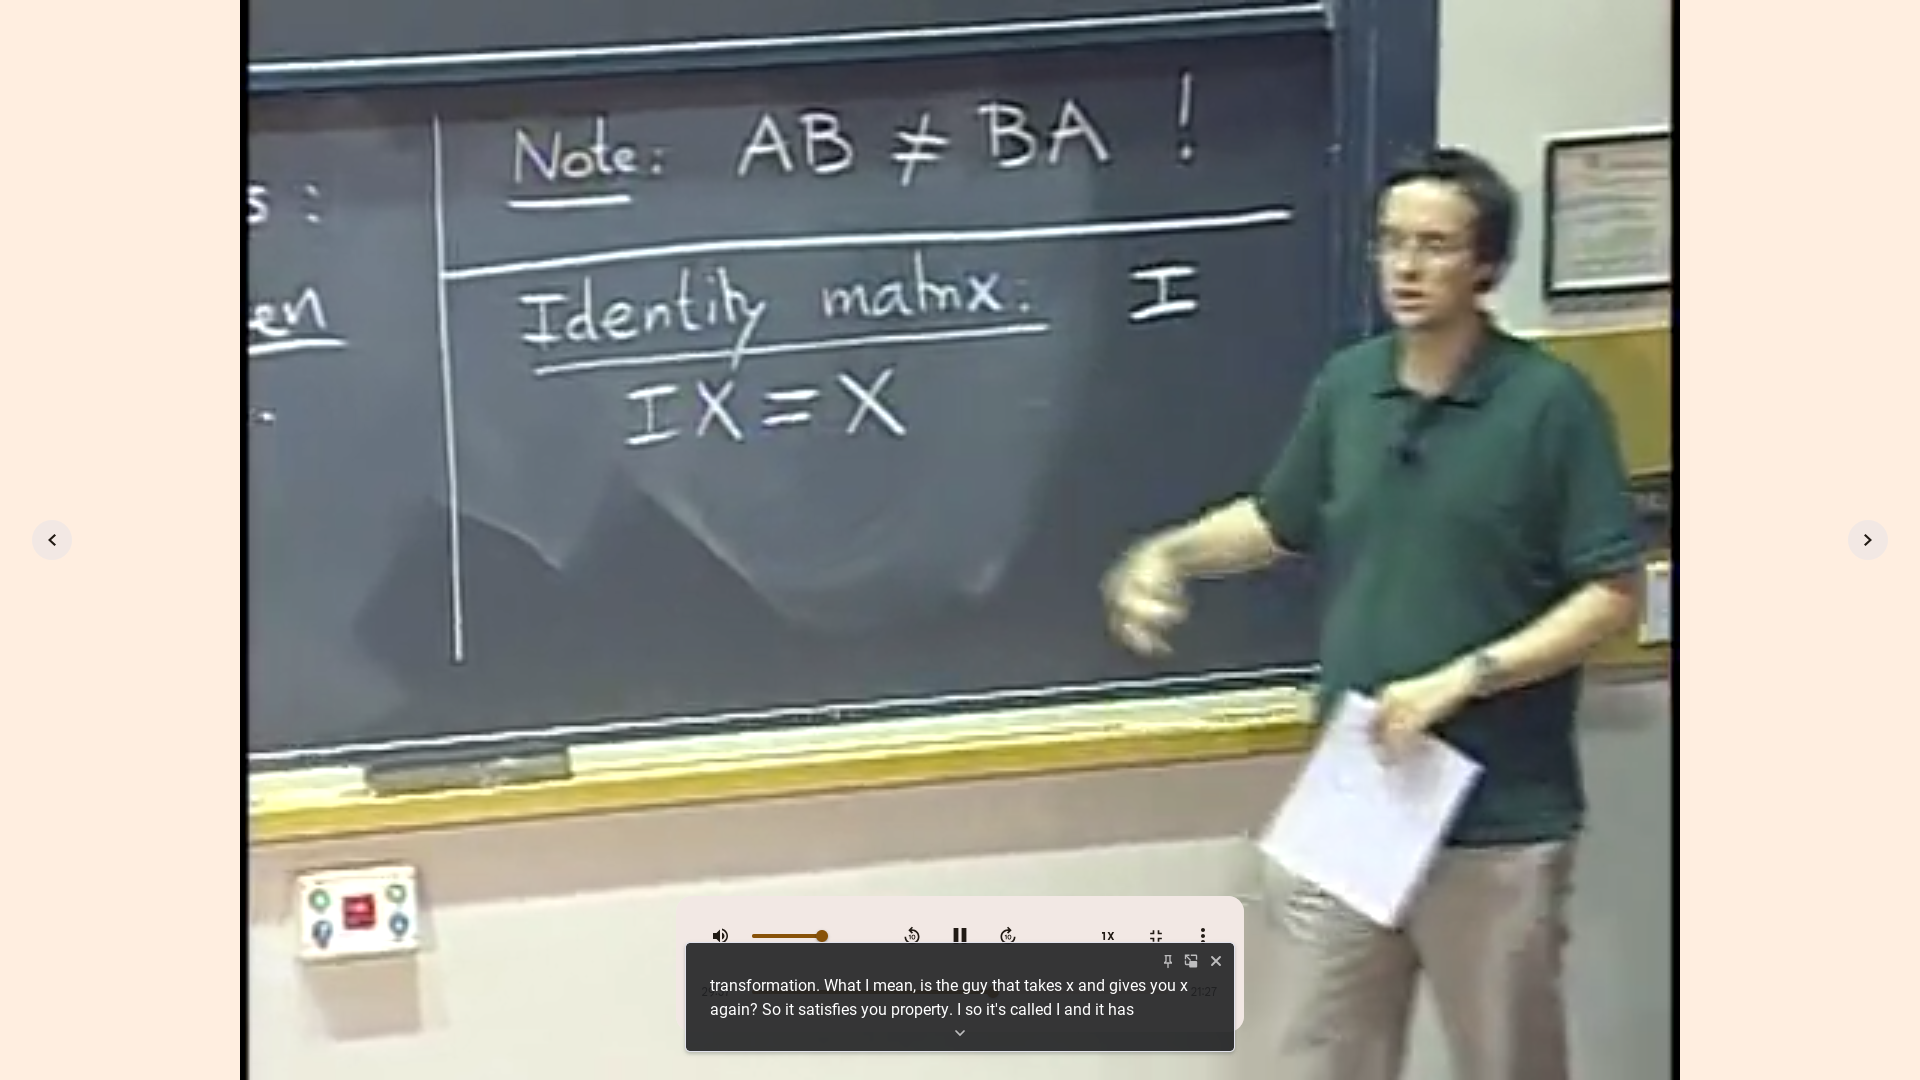 Note: AB ≠ BA !
s :
Identity matrix: I
en
IX = X
10
10
1X
transformation. What I mean, is the guy that takes x and gives you x
again? So it satisfies you property. I so it's called I and it has
21:27